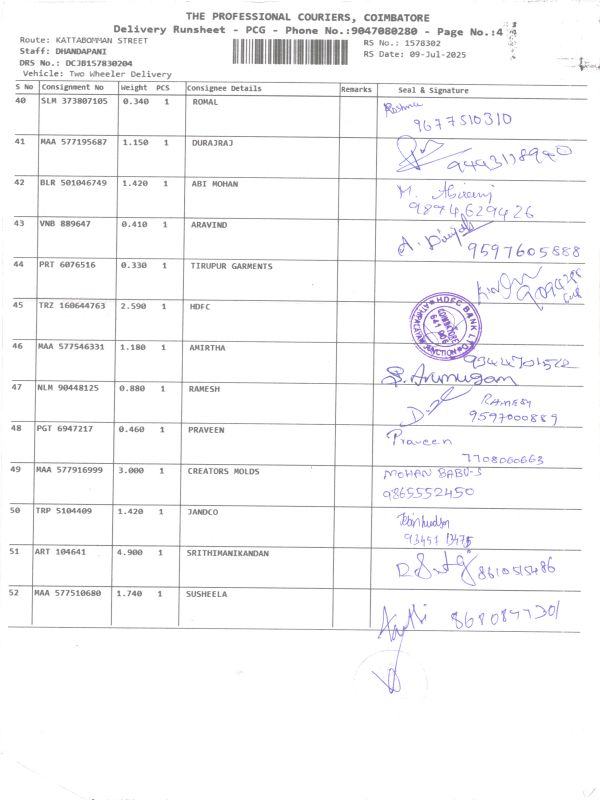 THE PROFESSIONAL COURIERS, COIMBATORE
Delivery Runsheet - PCG - Phone No.:9047080280 - Page No.:4
Route: KATTABOMMAN STREET
RS No.: 1578302
Staff: DHANDAPANI
RS Date: 09-Jul-2025
DRS No.: DCJB157830204
Vehicle: Two Wheeler Delivery
S No Consignment No Weight PCS Consignee Details Remarks Seal & Signature
40 SLM 373807105 0.340 1 ROMAL
9677510310
41 MAA 577195687 1.150 1 DURAJRAJ
42 BLR 501046749 1.420 1 ABI MOHAN
M. Abirami
9894629426
43 VNB 889647 0.410 1 ARAVIND
9597605888
44 PRT 6076516 0.330 1 TIRUPUR GARMENTS
45 TRZ 160644763 2.590 1 HDFC
HDFC BANK LTD
COIMBATORE
46 MAA 577546331 1.180 1 AMIRTHA
S. Arumugam
47 NLM 90448125 0.880 1 RAMESH
RAMESH
9597000889
48 PGT 6947217 0.460 1 PRAVEEN
Praveen
7708060663
49 MAA 577916999 3.000 1 CREATORS MOLDS
MOHAN BABU-S
9865552450
50 TRP 5104409 1.420 1 JANDCO
51 ART 104641 4.900 1 SRITHIMANIKANDAN
8610515486
52 MAA 577510680 1.740 1 SUSHEELA